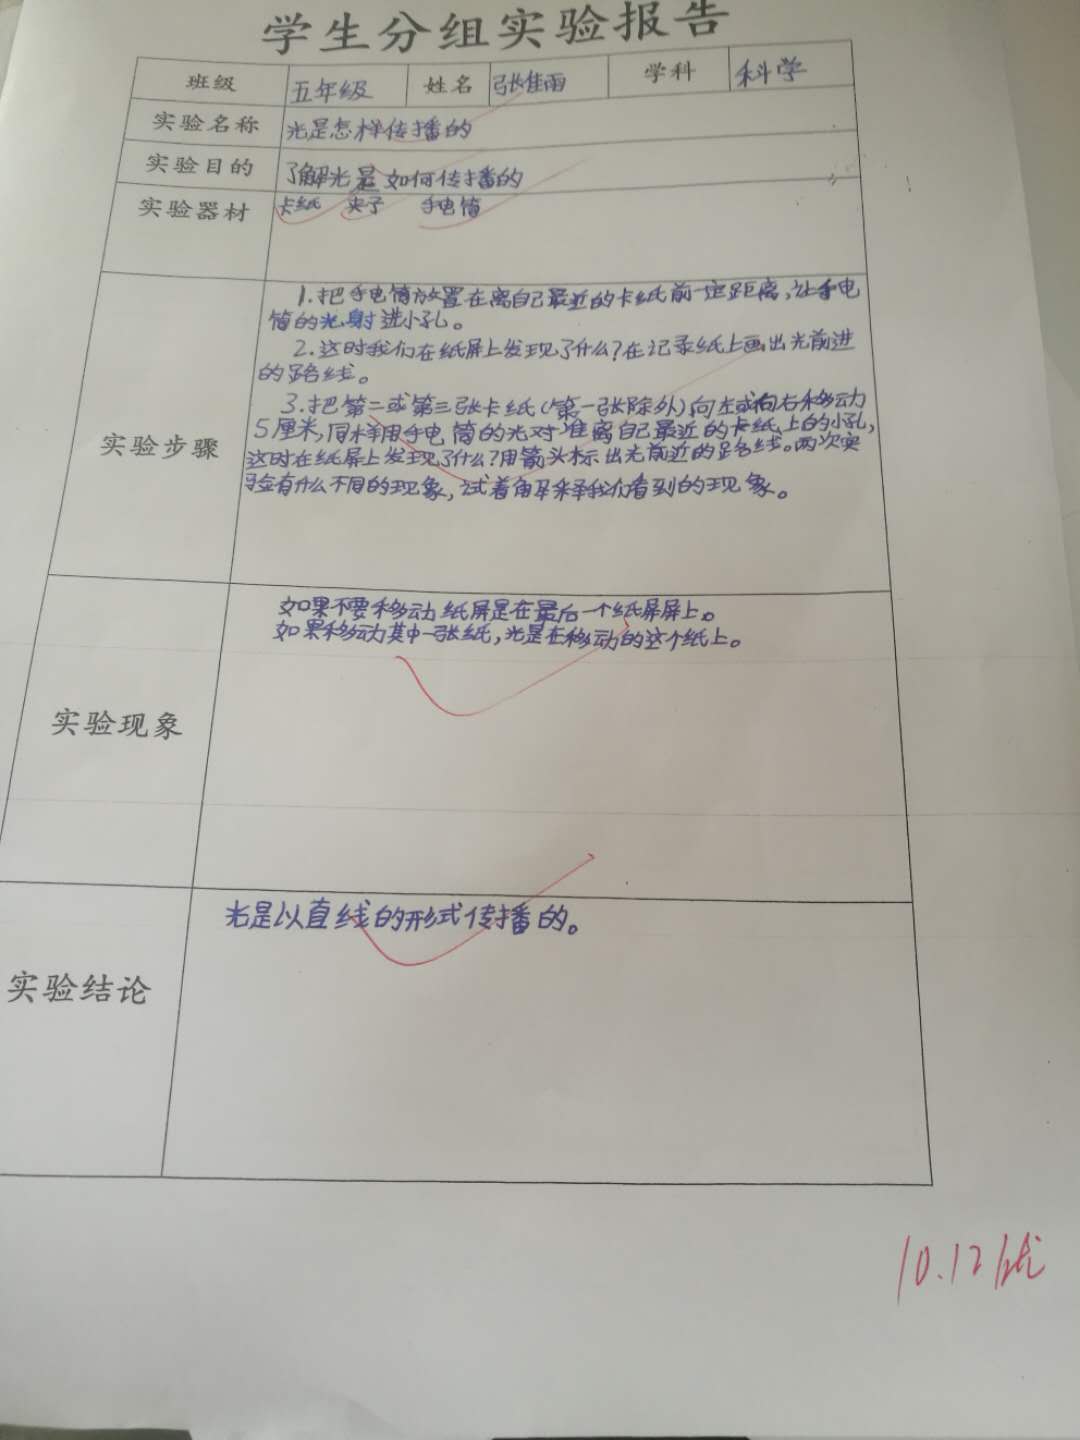 学生分组实验报告
班级 五年级 姓名 张佳雨 学科 科学
实验名称 光是怎样传播的
实验目的 了解光是如何传播的
实验器材 卡纸 夹子 手电筒
实验步骤
1.把手电筒放置在离自己最近的卡纸前一定距离,让手电
筒的光射进小孔。
2.这时我们在纸屏上发现了什么?在记录纸上画出光前进
的路线。
3.把第二或第三张卡纸(第一张除外)向左或向右移动
5厘米,同样用手电筒的光对准离自己最近的卡纸上的小孔,
这时在纸屏上发现了什么?用箭头标出光前近的路线。两次实
验有什么不同的现象,试着解释我们看到的现象。
实验现象
如果不要移动纸屏是在最后一个纸屏屏上。
如果移动其中一张纸,光是在移动的这个纸上。
实验结论
光是以直线的形式传播的。
10.12 优